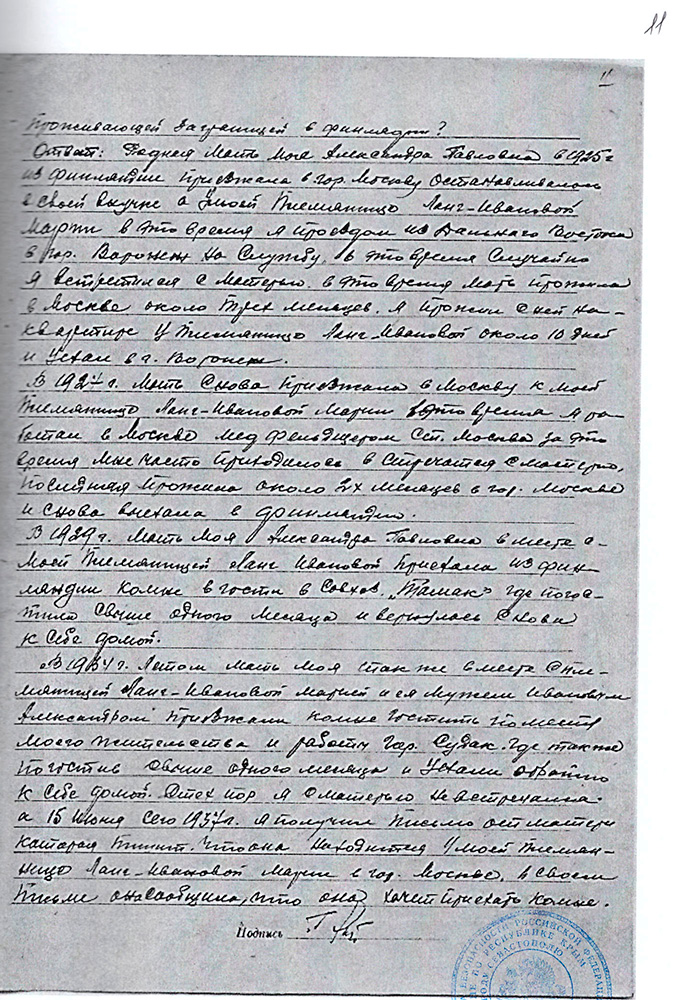 11
11
Проживающей заграницей в финляндии?
Ответ: Родная Мать моя Александра Павловна в 1925 г
из финляндии приезжала в гор. Москву останавливалась
в своей внучке а умоей племянницо Ланг-Ивановой
Марии в это время я проездом из Дальнего Востока
в гор. Воронеж на службу, в это время случайно
я встретился с матерью. в это время мать прожила
в Москве около трех месяцев. я прожил с ней на-
квартире у племянницо Ланг-Ивановой около 10 дней
и уехал в г. Воронеж.
В 1927 г. мать снова приезжала в Москву к моей
племянницо Ланг-Ивановой Марии в это время я ра-
ботал в Москве мед фельдшером ст. Москва за это
время мне часто приходилось встречатся с матерью,
последняя прожила около 2х месяцев в гор. Москве
и снова выехала в финляндию.
В 1929 г. мать моя Александра Павловна вместе с-
моей племянницей Ланг Ивановой приехала из фин-
ляндии комне в гости в Совхоз "Тамак" где погос-
тила свыше одного месяца и вернулась снова
к себе домой.
В 1934 г. летом мать моя также вместе спле-
мянницей Ланг-Ивановой Марией и ея мужем Ивановым
Александром приезжали комне гостить поместу
моего жительства и работы гор. Судак. где также
погостив свыше одного месяца и уехали обратно
к себе домой. Стех пор я сматерью невстречался.
а 15 июня сего 1937 г. я получил письмо от матери
каторая пишит. что она находится умоей племян-
ницо Ланг-Ивановой Марии в гор. Москве, в своем
письме она сообщила, что она хочет приехать комне.
Подпись
БЕЗОПАСНОСТИ РОССИЙСКОЙ ФЕДЕРАЦИИ
ПО РЕСПУБЛИКЕ КРЫМ
ГОРОДУ СЕВАСТОПОЛЮ